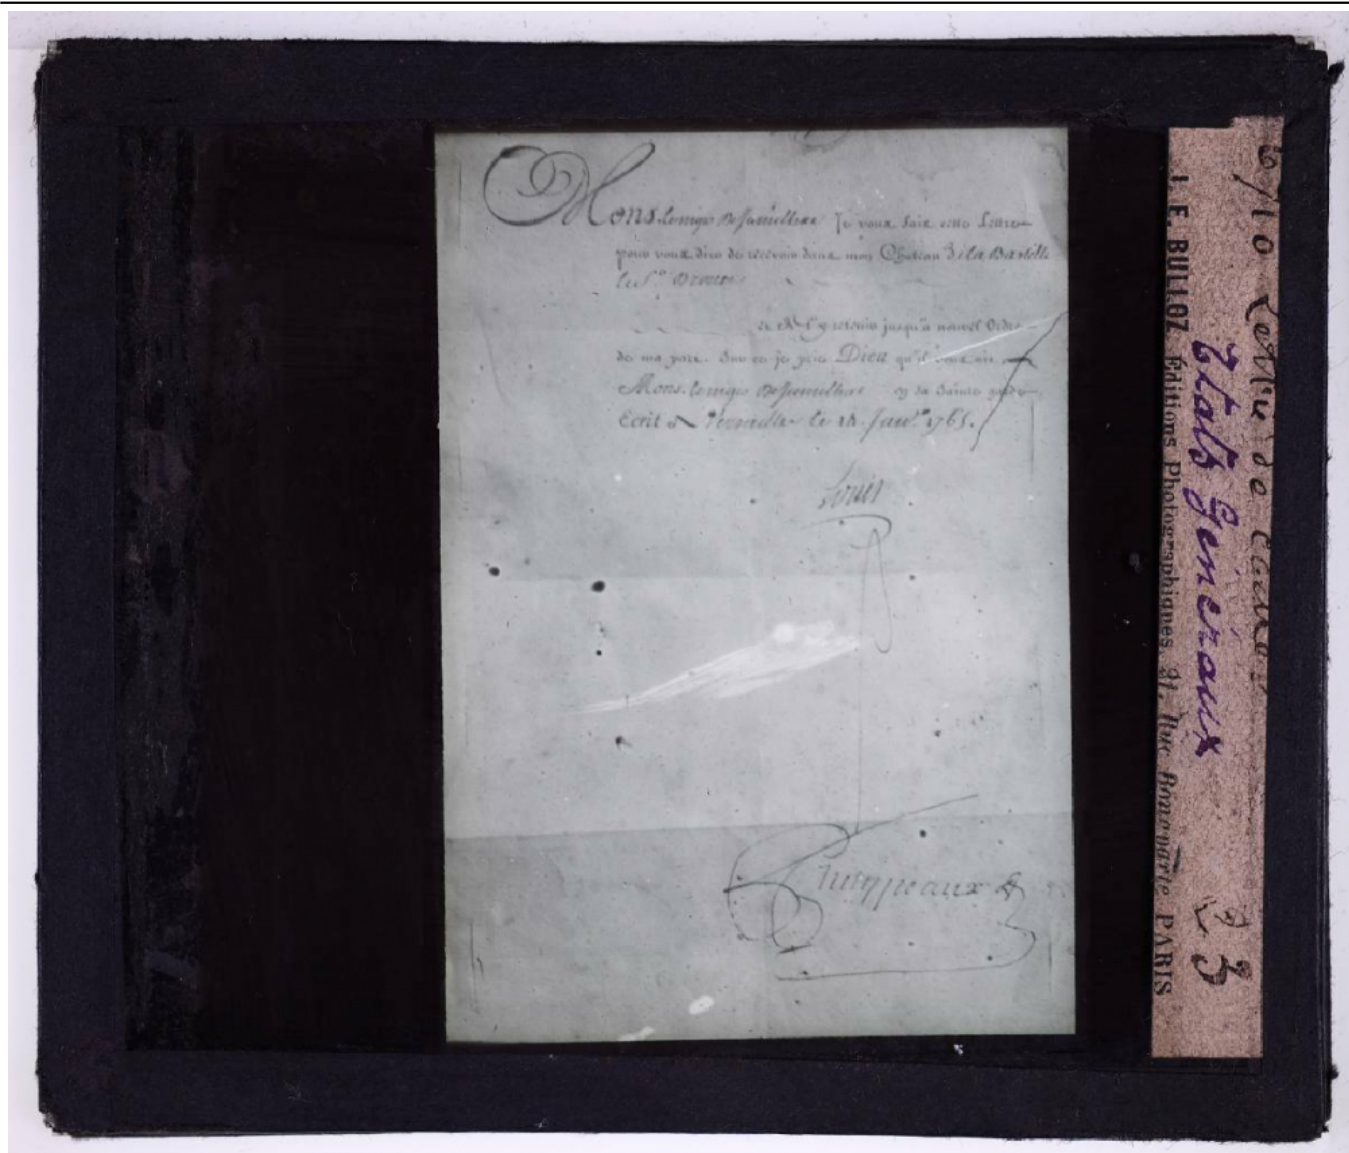 Mons. Je vous fais cette Lettre
pour vous dire de recevoir dans mon Chateau de la Bastille
le Sr.
et de l'y retenir jusqu'a nouvel Ordre
de ma part. Sur ce je prie Dieu qu'il vous ait
Mons. en sa Sainte garde
Ecrit a Versailles le Janvr. 1765.
Louis
Phelypeaux
6/10 Lettre de Cachet
Etats Généraux 23
J. E. BULLOZ Éditions Photographiques 21, Rue Bonaparte PARIS